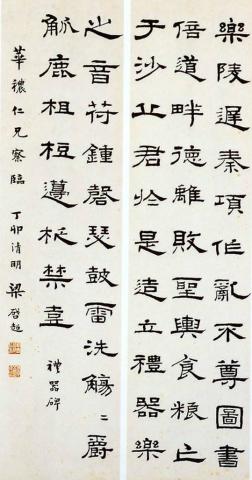 樂陵遲秦項作亂不尊圖書
倍道畔德離敗聖輿食粮亡
于沙丘君於是造立禮器樂
之音苻鍾磬瑟鼓雷洗觴〻爵
觚鹿柤梪籩柉禁壺
禮器碑
華穠仁兄臨 丁卯清明 梁啓超